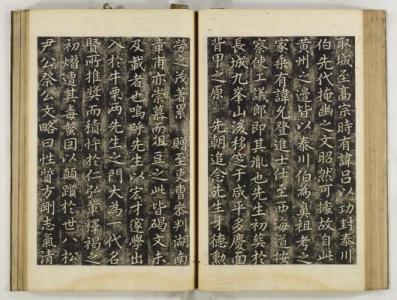 取城至高宗時有諱呂以功封泰川
伯先代掩幽之文昭然可據故自此
黃州之邊皆以泰川伯為鼻祖考之
家乘有諱允登進士仕至西海道按
察使工議郎即其胤也先生初葬於
長城九峯山後移窆于咸平多慶面
背甲之原 先朝追念先生才德勳
勞之茂著累 贈至吏曹參判湖南
章甫亦崇慕而俎豆之此皆碣文未
及載者也嗚呼先生以宏才邃學出
入於牛栗兩先生之門大為一代名
賢所推奬而積忤於仁弘輩釋褐之
初遭其毒螫因以顚躓於世八松
尹公祭公文略曰性質方剛志氣清